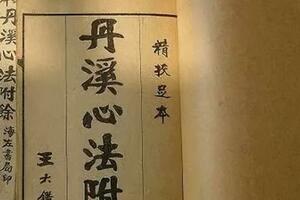 精校足本
丹溪心法附
王大鏞
丹溪心法附餘
海左書局印